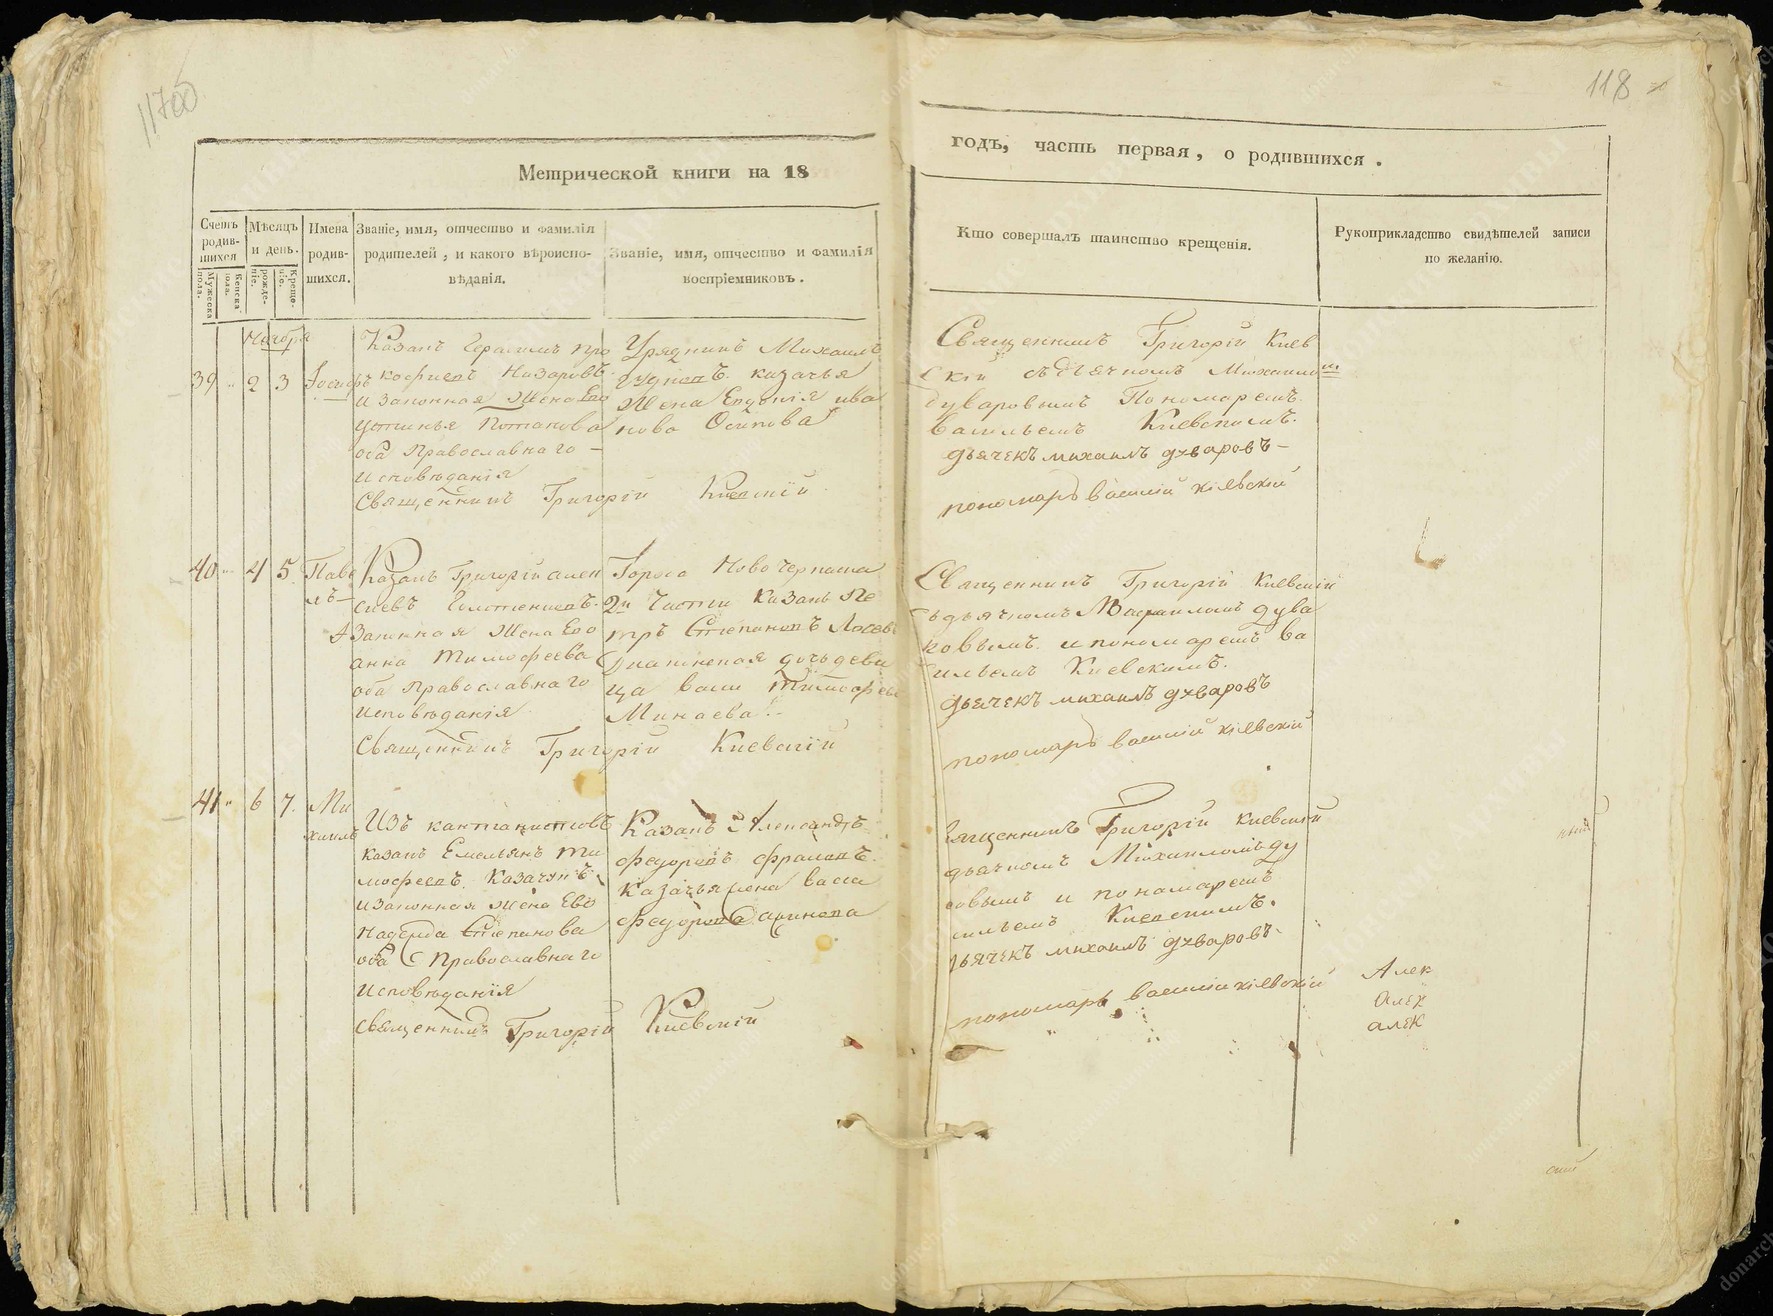 118
Метрической книги на 18
годъ, часть первая, о родившихся.
Счетъ родив-шихся
Мужеска пола.
Женска пола.
Мѣсяцъ и день.
рожде-нiе.
Креще-нiе.
Имена родив-шихся.
Званiе, имя, отчество и фамилiя
родителей, и какого вѣроиспо-
вѣданiя.
Званiе, имя, отчество и фамилiя
воспрiемниковъ.
Кто совершалъ таинство крещенiя.
Рукоприкладство свидѣтелей записи
по желанiю.
Ноября
39 " 2 3
Iосифъ
Казакъ Герасимъ Про
кофиевъ Назаровъ
и законная Жена Его
устинья Потапова
оба Православнаго
Исповѣданiя
Священникъ Григорiй Киевскiй
Урядникъ Михаилъ
казачья
Жена Евдокiя ива
нова Осипова
Священникъ Григорiй Киев
скiй съ дьячкомъ Михаиломъ
дуваровымъ Пономаремъ
Васильемъ Киевскимъ.
дьячекъ михаилъ дуваровъ
пономарь василiй кiевскiй
40 " 4 5
Паве
лъ
Казакъ Григорiй алек
сiевъ
Законная Жена Его
анна Тимофеева
оба Православнаго
исповѣданiя
Священникъ Григорiй Киевскiй
Города Новочеркаска
2й Части Казакъ Пе
тръ Степановъ Лосевъ
дочь деви
ца Тимофеева
Минаева
Священникъ Григорiй Киевскiй
съ дьячкомъ Михаиломъ дува
ровымъ и пономаремъ Ва
сильемъ Киевскимъ.
дьячекъ михаилъ дуваровъ
пономарь василiй кiевскiй
41 " 6 7
Ми
хаилъ
Изъ кантонистовъ
казакъ Емельянъ Ти
мофеевъ Казачукъ
и законная Жена Его
Надежда Степанова
оба Православнаго
Исповѣданiя
священникъ Григорiй Киевскiй
Казакъ Александръ
федоровъ фроловъ
казачья жена васса
федорова
Священникъ Григорiй Киевскiй
дьячкомъ Михаиломъ ду
ровымъ и пономаремъ
сильемъ Киевскимъ.
дьячекъ михаилъ дуваровъ
пономарь василiй кiевскiй
Алек
Алек
алек